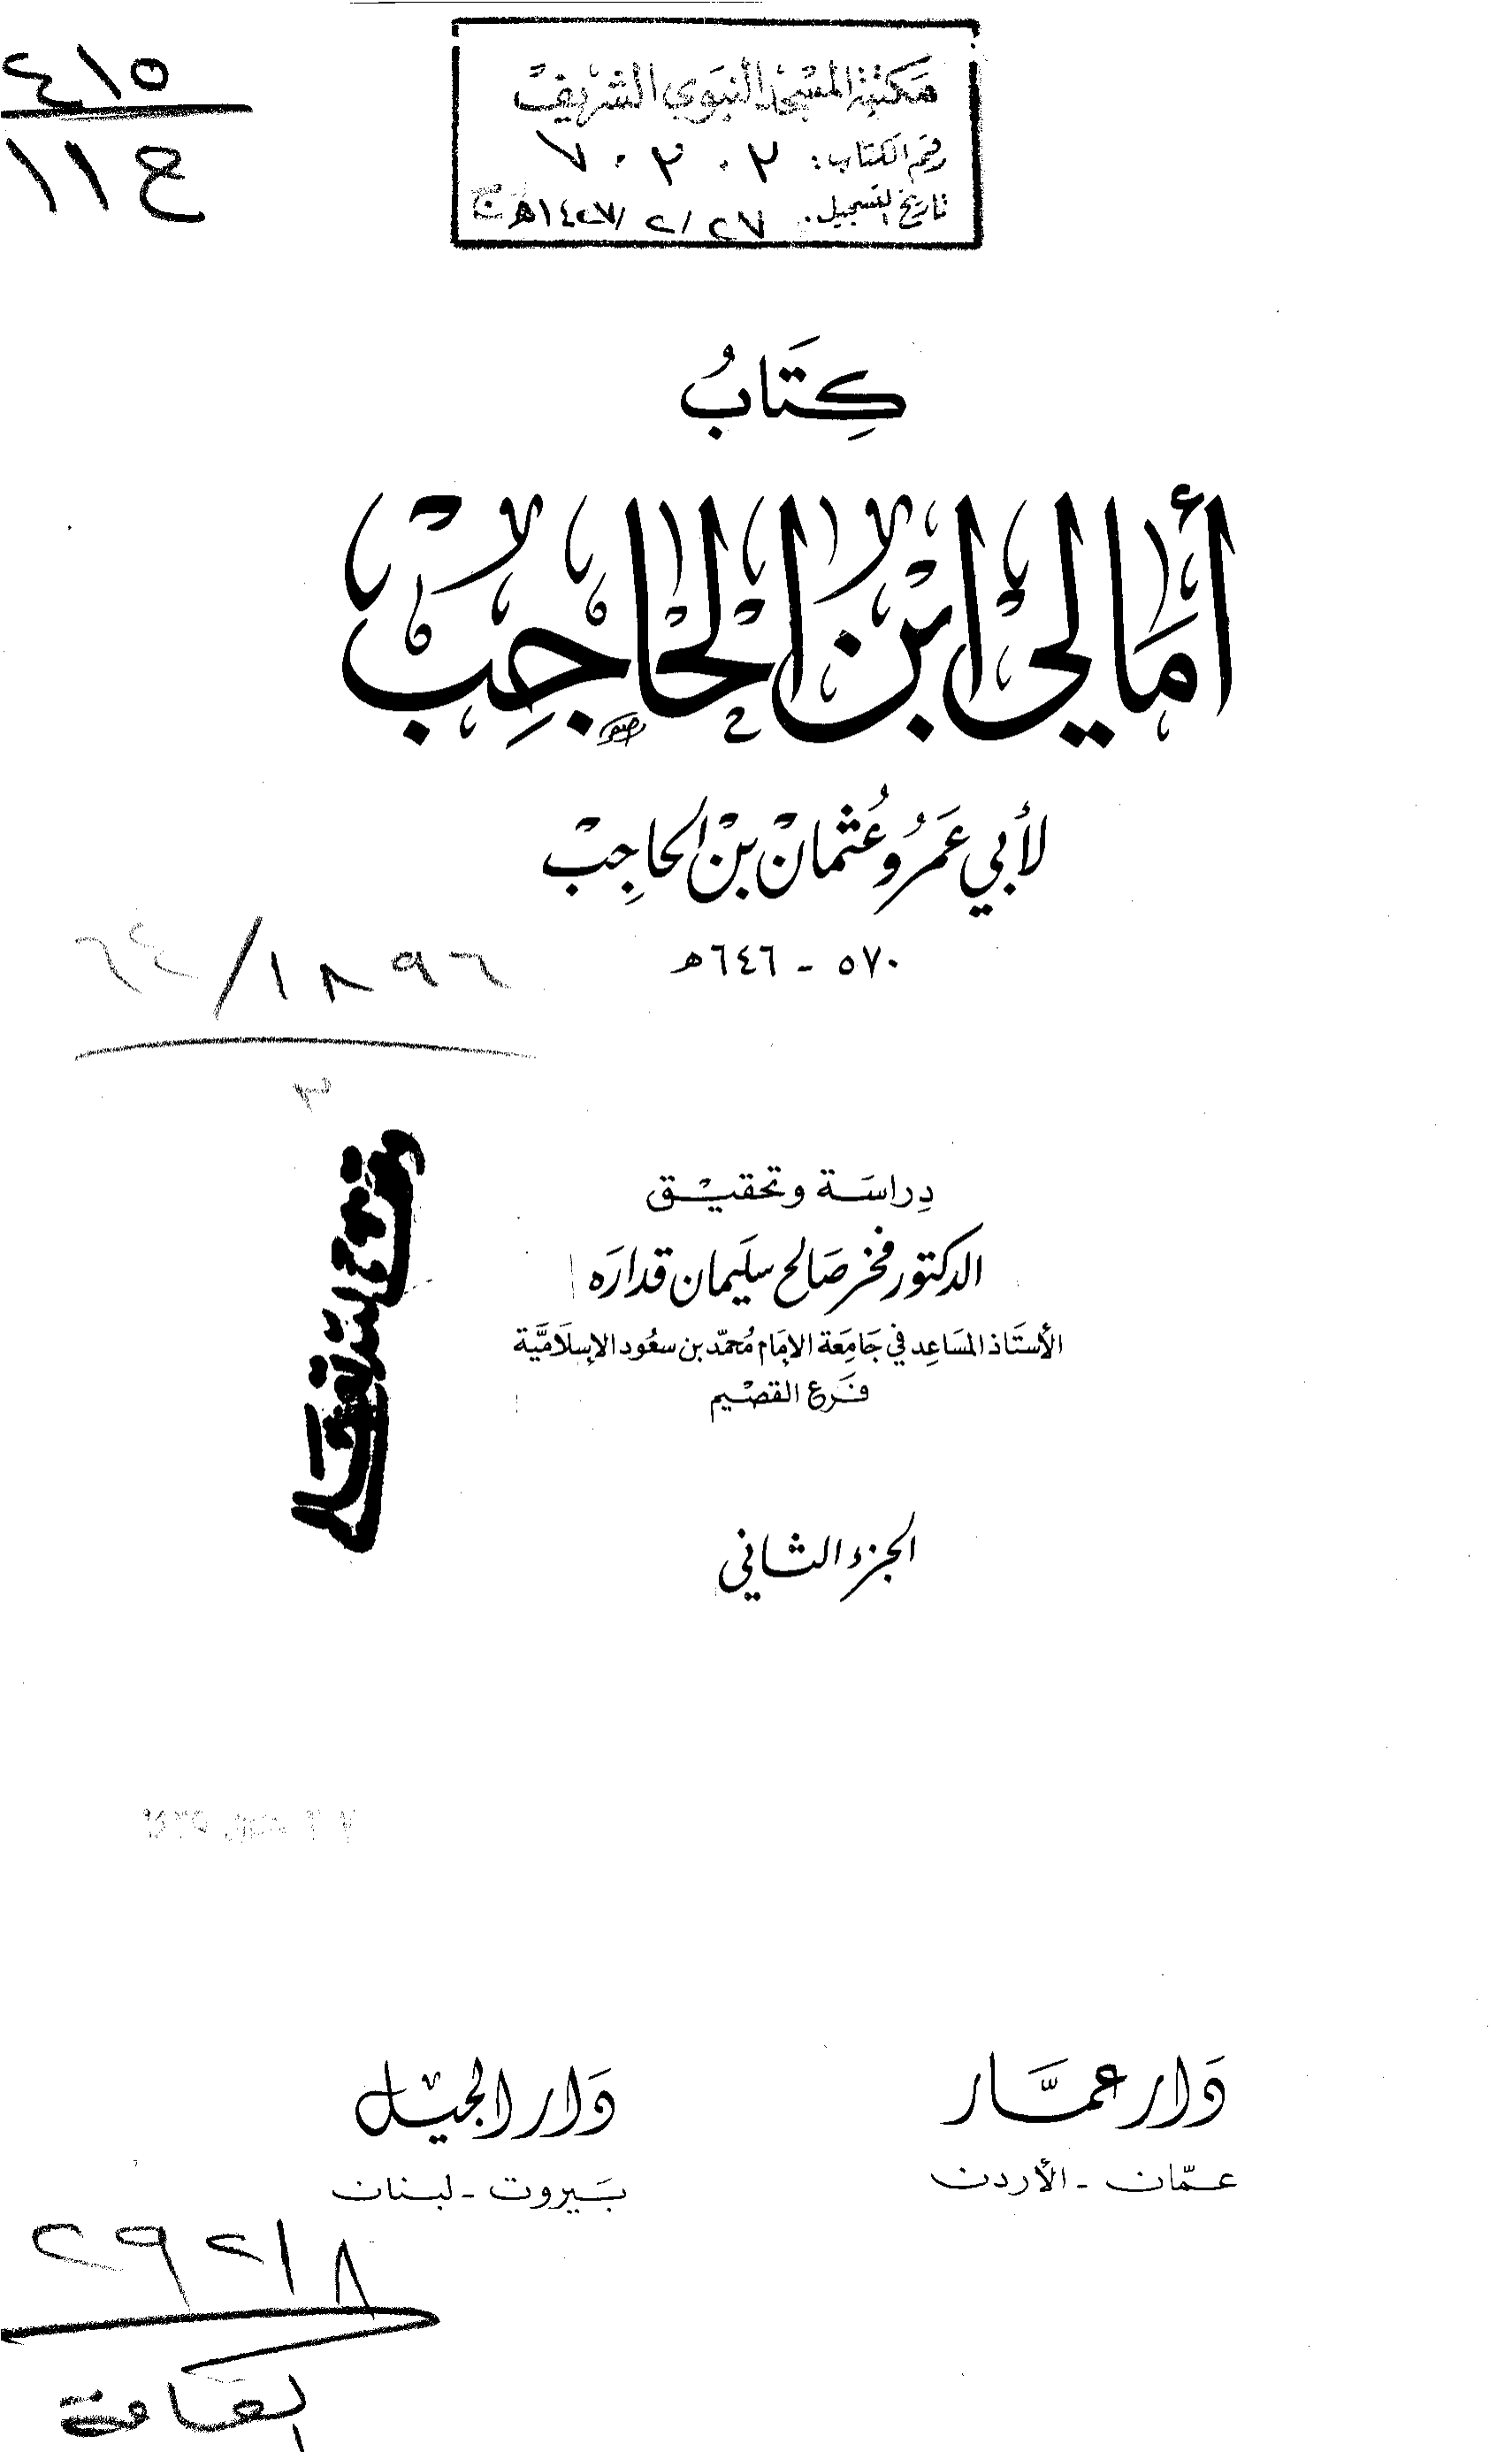 ٤١٥
ح ١١
مكتبة المسجد النبوي الشريف
رقم الكتاب: ٧٠٣٠٢
تاريخ التسجيل: ٢٧/٢/١٤٢٧هـ
كِتَابُ
أمَالي ابْن الحَاجِبْ
لأبي عَمَرُو عُثْمانْ بنْ الحاجِبْ
٥٧٠ - ٦٤٦هـ
٦٤/١٨٩٦
٣
دِراسَة وتحقيْق
الدكتور فخر صَالح سليَمان قدارَه
الأستَاذ المسَاعِد في جَامِعَة الإمَام مُحمّد بن سعُود الإسلَاميَّة
فَرع القصْيم
الجزء الثاني
دَار عمَّار
عمّان - الأردن
دَار الجيْل
بَيروت - لبنان
٢٩٢١٨
العامة